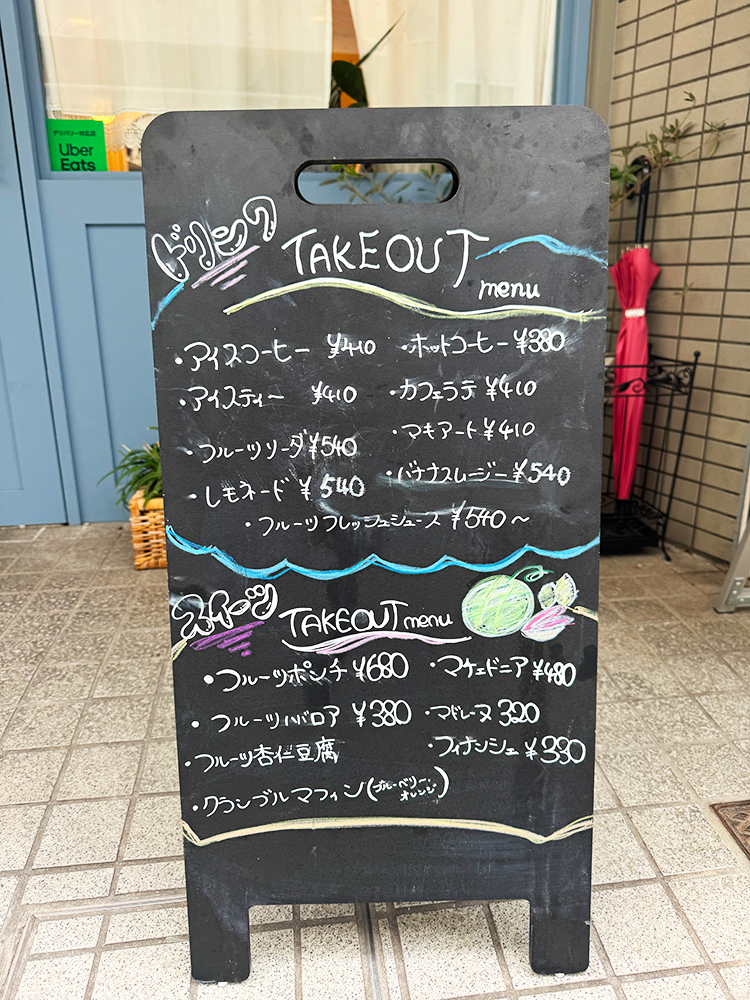 デリバリー対応店
Uber
Eats
ドリンク
TAKEOUT
menu
・アイスコーヒー ¥410
・ホットコーヒー ¥380
・アイスティー ¥410
・カフェラテ ¥410
・フルーツソーダ ¥540
・マキアート ¥410
・レモネード ¥540
・バナナスムージー ¥540
・フルーツフレッシュジュース ¥540〜
スイーツ
TAKEOUT menu
・フルーツポンチ ¥680
・マチェドニア ¥480
・フルーツババロア ¥380
・マドレーヌ 320
・フルーツ杏仁豆腐
・フィナンシェ ¥330
・クランブルマフィン(ブルーベリー・
オレンジ)